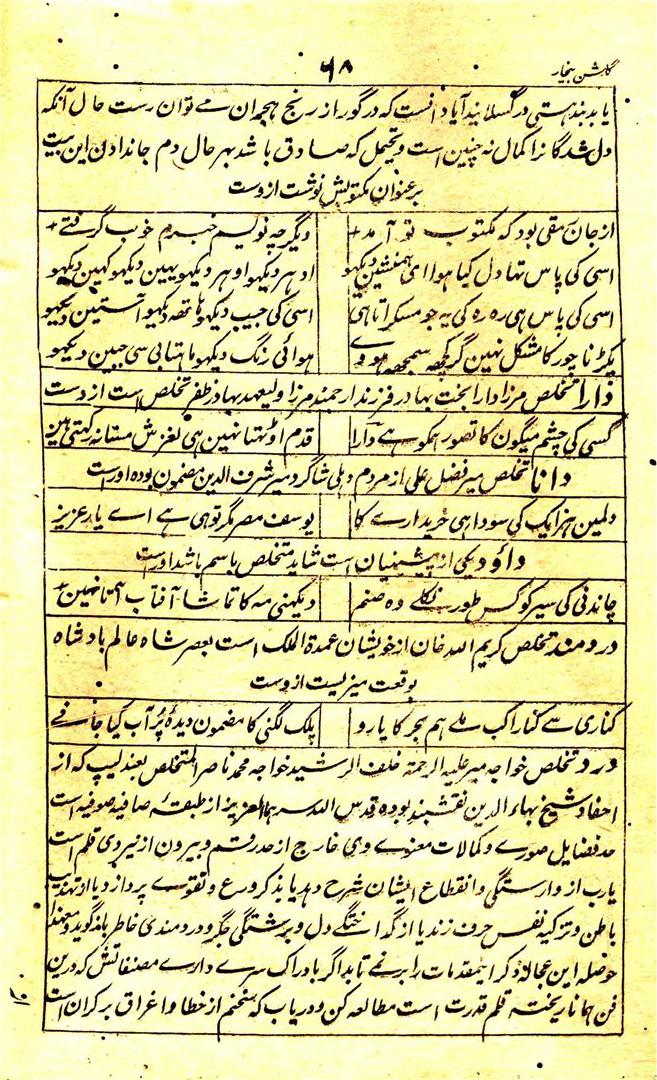 گلشن بیخار
۶۸
یا بدبند هستی در گسلانید آیا دانست که در گور از رنج هجران می توان رست حال آنکه
دل شدگانرا کمال نه چنین است و تحمل که صادق باشد بهر حال دم جان دادن این بیت
بر عنوان مکتوبش نوشت ازوست
از جان رمقی بود که مکتوب تو آمد + دیگر چه نویسم خبرم خوب گرفتے +
اسی کی پاس تھا دل کیا ہوا ای ہمنشین دیکھو ادہر دیکھو اوہر دیکھو یہین دیکھو کہین دیکھو
اسی کی پاس ہی رہ رہ کی یہ جو مسکراتا ہی اسی کی جیب دیکھو ہاتھ دیکھو آستین دیکھو
پکڑنا چور کا مشکل نہین گر کچھ سمجھ ہووے ہوائی رنگ دیکھو ماہتابی سی جبین دیکھو
دارا تخلص مرزا دارا بخت بہادر فرزند ارجمند مرزا ولیعہد بہادر ظفر تخلص است ازوست
کسی کی چشم میگون کا تصور ہمکو ہے دارا قدم اوٹھتا نہین ہی لغزش مستانہ رکھتی ہین
دانا تخلص میر فضل علی از مردم دہلی شاگرد میر شرف الدین مضمون بودہ اوراست
دلمین ہر ایک کی سودا ہی خریدارے کا یوسف مصر مگر توہی ہے اے یار عزیز
داؤد یکی از پیشینیان است شاید متخلص باسم باشد اوراست
چاندنی کی سیر کو کس طور نکلے وہ صنم دیکھنی مہ کا تماشا آفتاب آتا نہین
درومند تخلص کریم اللہ خان از خویشان عمدة الملک است بعصر شاہ عالم بادشاہ
بوقعت میزیست ازوست
کناری سے کنارا کب ملے ہم بحر کا یارو پلک لگنی کا مضمون دیدۂ پرآب کیا جانے
درد تخلص خواجہ میر علیہ الرحمة خلف الرشید خواجہ محمد ناصر المتخلص بعندلیب کہ از
احفاد شیخ بہاء الدین نقشبند بودہ قدس اللہ سرہما العزیز از طبقۂ صافیہ صوفیہ است
حد فضایل صورے و کمالات معنوے وی خارج از حد رقم و بیرون از نیروی قلم است
یارب از وارستگی و انقطاع ایشان شرح دہد یا بذکر ورع و تقوے پردازد یا از تہذیب
باطن و تزکیہ نفس حرف زند یا از گداختگے دل و برشتگی جگر و دردمندی خاطر باز گوید و معہذا
حوصلہ این عجالہ ذکر اینمقدمات را بر نے تابد اگر بادراک سرے دارے مصنفاتش کہ درین
فن ہمانا ریختہ قلم قدرت است مطالعہ کن و دریاب کہ سخنم از خطا و اغراق بر کران است